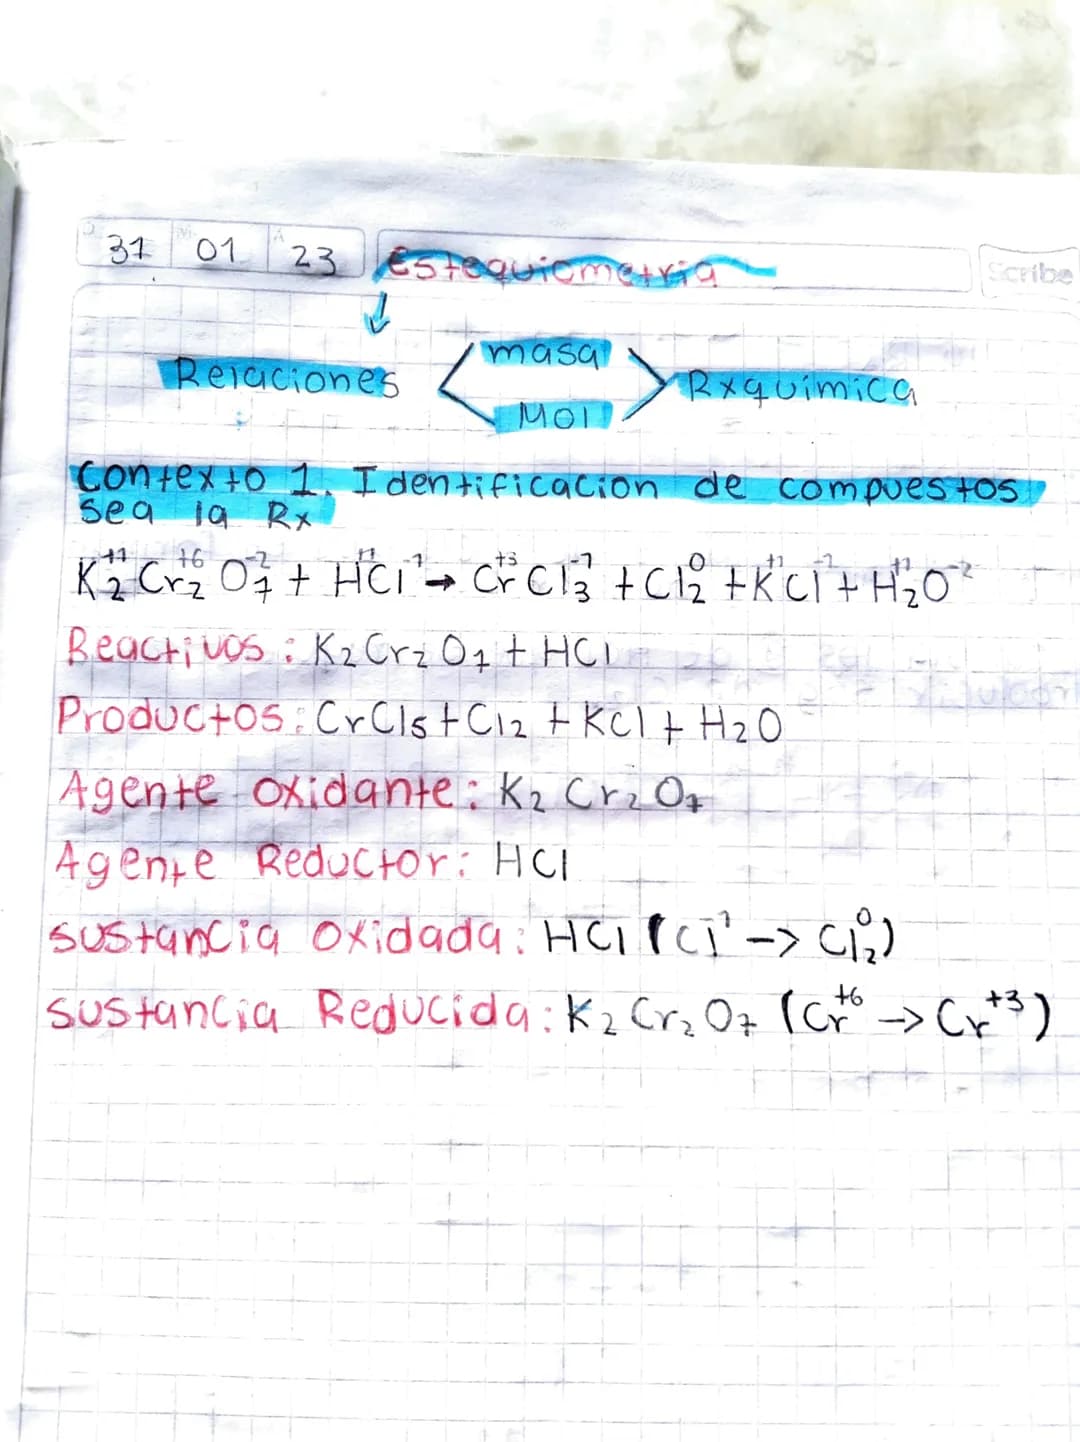 31 01 23 Estequiometria
Scribe
Relaciones masa Mol Rxquimica
Contexto 1. Identificacion de compuestos
Sea la Rx
K₂⁺¹Cr₂⁺⁶O₇⁻² + H⁺¹Cl⁻¹ → Cr⁺³Cl₃⁻¹ + Cl₂⁰ + K⁺¹Cl⁻¹ + H₂⁺¹O⁻²
Reactivos: K₂Cr₂O₇ + HCl
Productos: CrCl₅ + Cl₂ + KCl + H₂O
Agente oxidante: K₂Cr₂O₇
Agente Reductor: HCl
sustancia Oxidada: HCl (Cl⁻¹ -> Cl₂⁰)
sustancia Reducida: K₂Cr₂O₇ (Cr⁺⁶ -> Cr⁺³)